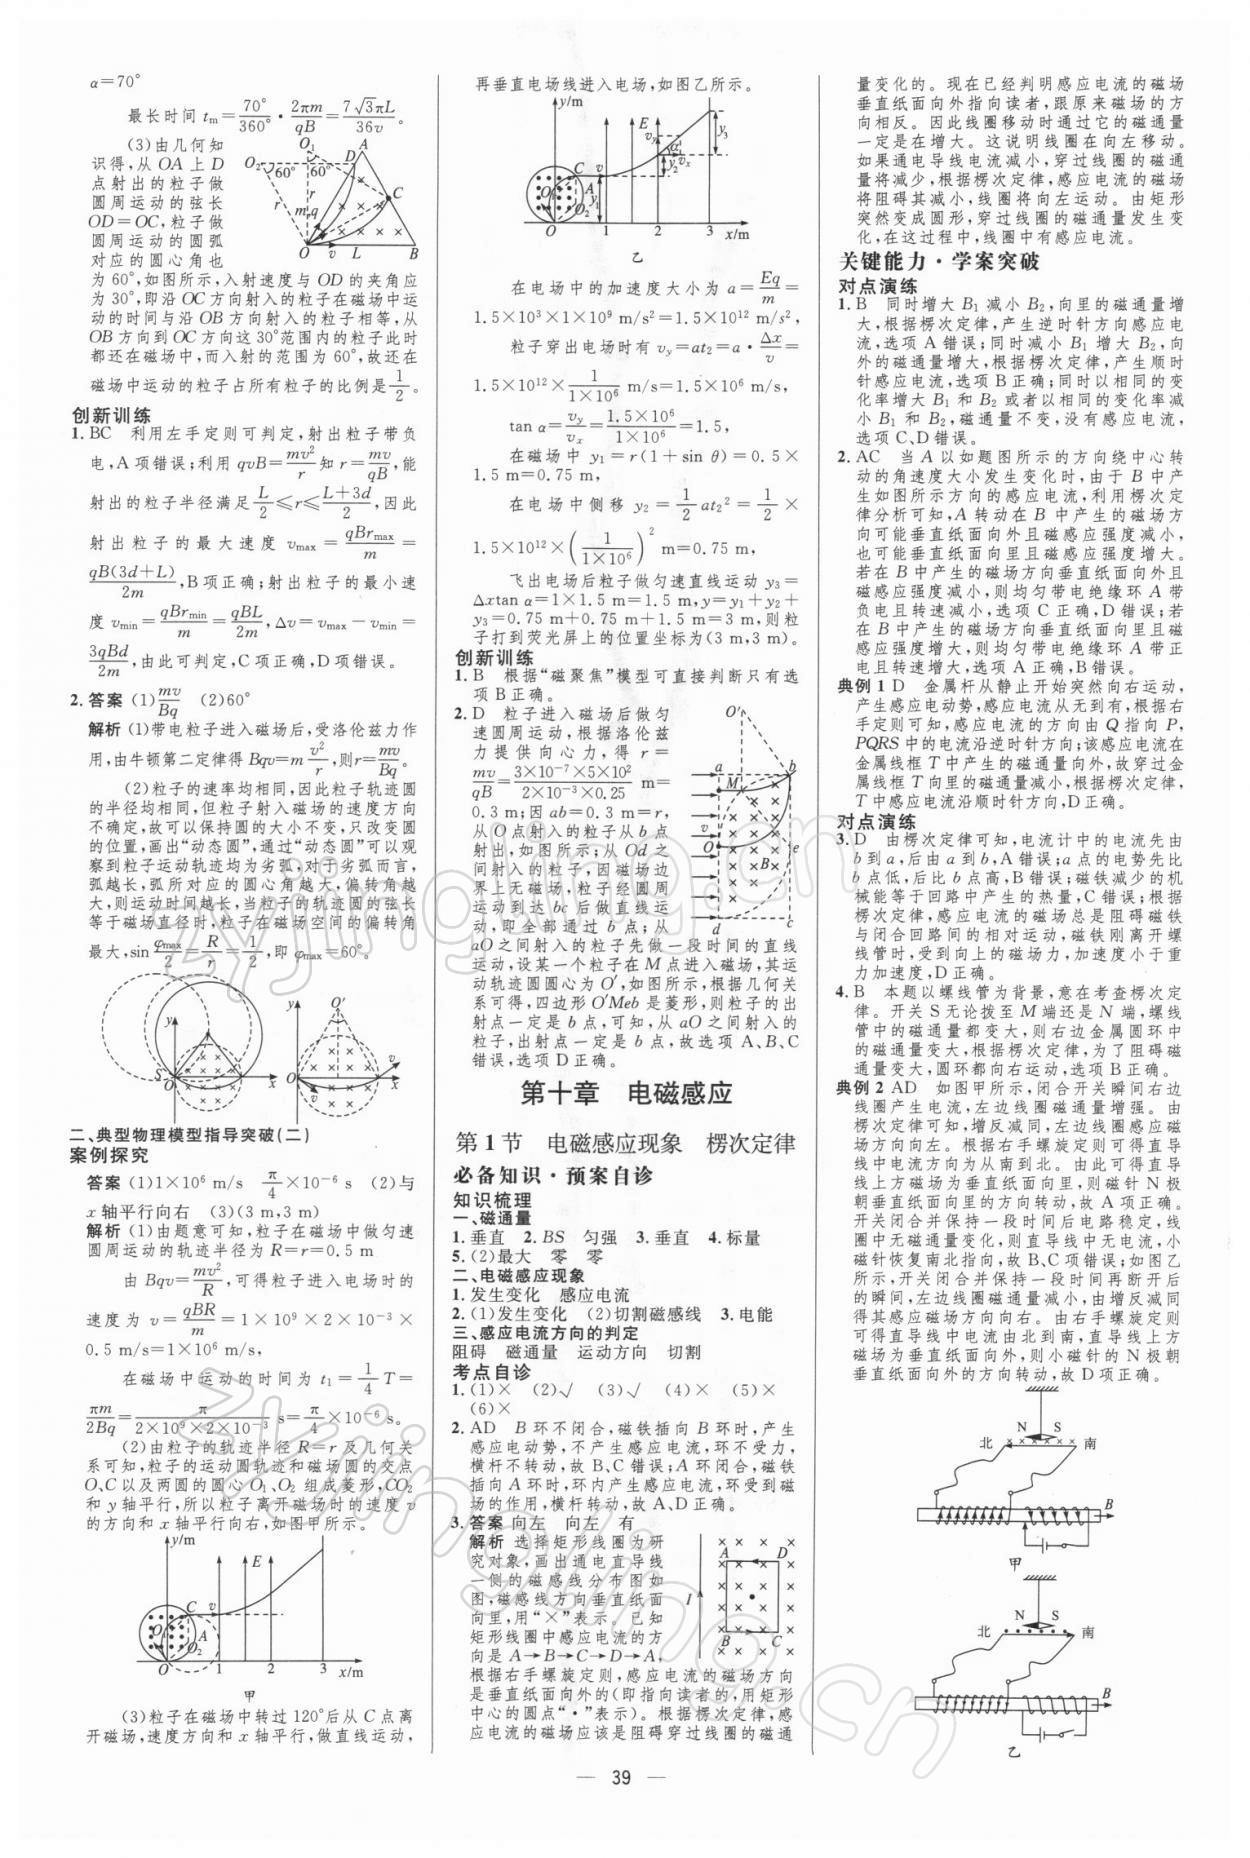 α=70°
最长时间 tm=70°/360°·2πm/qB=7√3πL/36v。
(3)由几何知
识得,从 OA 上 D
点射出的粒子做
圆周运动的弦长
OD=OC,粒子做
圆周运动的圆弧
对应的圆心角也
为60°,如图所示,入射速度与 OD 的夹角应
为30°,即沿 OC 方向射入的粒子在磁场中运
动的时间与沿 OB 方向射入的粒子相等,从
OB 方向到 OC 方向这30°范围内的粒子此时
都还在磁场中,而入射的范围为60°,故还在
磁场中运动的粒子占所有粒子的比例是1/2。
创新训练
1. BC 利用左手定则可判定,射出粒子带负
电,A项错误;利用 qvB=mv²/r知 r=mv/qB,能
射出的粒子半径满足L/2≤r≤(L+3d)/2,因此
射出粒子的最大速度 vmax=qBrmax/m=
qB(3d+L)/2m,B项正确;射出粒子的最小速
度 vmin=qBrmin/m=qBL/2m,Δv=vmax−vmin=
3qBd/2m,由此可判定,C项正确,D项错误。
2. 答案 (1)mv/Bq (2)60°
解析 (1)带电粒子进入磁场后,受洛伦兹力作
用,由牛顿第二定律得 Bqv=mv²/r,则r=mv/Bq。
(2)粒子的速率均相同,因此粒子轨迹圆
的半径均相同,但粒子射入磁场的速度方向
不确定,故可以保持圆的大小不变,只改变圆
的位置,画出“动态圆”,通过“动态圆”可以观
察到粒子运动轨迹均为劣弧,对于劣弧而言,
弧越长,弧所对应的圆心角越大,偏转角越
大,则运动时间越长,当粒子的轨迹圆的弦长
等于磁场直径时,粒子在磁场空间的偏转角
最大,sin φmax/2=R/r=1/2,即 φmax=60°。
二、典型物理模型指导突破(二)
案例探究
答案 (1)1×10⁶ m/s π/4×10⁻⁶ s (2)与
x 轴平行向右 (3)(3 m,3 m)
解析 (1)由题意可知,粒子在磁场中做匀速
圆周运动的轨迹半径为 R=r=0.5 m
由 Bqv=mv²/R,可得粒子进入电场时的
速度为 v=qBR/m=1×10⁹×2×10⁻³×
0.5 m/s=1×10⁶ m/s,
在磁场中运动的时间为 t₁=1/4 T=
πm/2Bq=π/(2×10⁹×2×10⁻³) s=π/4×10⁻⁶ s。
(2)由粒子的轨迹半径 R=r 及几何关
系可知,粒子的运动圆轨迹和磁场圆的交点
O、C 以及两圆的圆心 O₁、O₂ 组成菱形,CO₂
和 y 轴平行,所以粒子离开磁场时的速度 v
的方向和 x 轴平行向右,如图甲所示。
甲
(3)粒子在磁场中转过120°后从 C 点离
开磁场,速度方向和 x 轴平行,做直线运动,
再垂直电场线进入电场,如图乙所示。
乙
在电场中的加速度大小为 a=Eq/m=
1.5×10³×1×10⁹ m/s²=1.5×10¹² m/s²,
粒子穿出电场时有 vy=at₂=a·Δx/v=
1.5×10¹²×1/(1×10⁶) m/s=1.5×10⁶ m/s,
tan α=vy/vx=1.5×10⁶/1×10⁶=1.5,
在磁场中 y₁=r(1+sin θ)=0.5×
1.5 m=0.75 m,
在电场中侧移 y₂=1/2at₂²=1/2×
1.5×10¹²×(1/(1×10⁶))² m=0.75 m,
飞出电场后粒子做匀速直线运动 y₃=
Δxtan α=1×1.5 m=1.5 m,y=y₁+y₂+
y₃=0.75 m+0.75 m+1.5 m=3 m,则粒
子打到荧光屏上的位置坐标为(3 m,3 m)。
创新训练
1. B 根据“磁聚焦”模型可直接判断只有选
项B正确。
2. D 粒子进入磁场后做匀
速圆周运动,根据洛伦兹
力提供向心力,得 r=
mv/qB=3×10⁻⁷×5×10²/2×10⁻³×0.25 m=
0.3 m;因 ab=0.3 m=r,
从 O 点射入的粒子从 b 点
射出,如图所示;从 Od 之
间射入的粒子,因磁场边
界上无磁场,粒子经圆周
运动到达 bc 后做直线运
动,即全部通过 b 点;从
aO 之间射入的粒子先做一段时间的直线
运动,设某一个粒子在 M 点进入磁场,其运
动轨迹圆圆心为 O′,如图所示,根据几何关
系可得,四边形 O′Meb 是菱形,则粒子的出
射点一定是 b 点,可知,从 aO 之间射入的
粒子,出射点一定是 b 点,故选项A、B、C
错误,选项D正确。
第十章 电磁感应
第1节 电磁感应现象 楞次定律
必备知识·预案自诊
知识梳理
一、磁通量
1. 垂直 2. BS 匀强 3. 垂直 4. 标量
5. (2)最大 零 零
二、电磁感应现象
1. 发生变化 感应电流
2. (1)发生变化 (2)切割磁感线 3. 电能
三、感应电流方向的判定
阻碍 磁通量 运动方向 切割
考点自诊
1. (1)× (2)√ (3)√ (4)× (5)×
(6)×
2. AD B 环不闭合,磁铁插向 B 环时,产生
感应电动势,不产生感应电流,环不受力,
横杆不转动,故B、C错误;A 环闭合,磁铁
插向 A 环时,环内产生感应电流,环受到磁
场的作用,横杆转动,故A、D正确。
3. 答案 向左 向左 有
解析 选择矩形线圈为研
究对象,画出通电直导线
一侧的磁感线分布图如
图,磁感线方向垂直纸面
向里,用“×”表示。已知
矩形线圈中感应电流的方
向是 A→B→C→D→A,
根据右手螺旋定则,感应电流的磁场方向
是垂直纸面向外的(即指向读者的,用矩形
中心的圆点“·”表示)。根据楞次定律,感
应电流的磁场应该是阻碍穿过线圈的磁通
量变化的。现在已经判明感应电流的磁场
垂直纸面向外指向读者,跟原来磁场的方
向相反。因此线圈移动时通过它的磁通量
一定是在增大。这说明线圈在向左移动。
如果通电导线电流减小,穿过线圈的磁通
量将减少,根据楞次定律,感应电流的磁场
将阻碍其减小,线圈将向左运动。由矩形
突然变成圆形,穿过线圈的磁通量发生变
化,在这过程中,线圈中有感应电流。
关键能力·学案突破
对点演练
1. B 同时增大 B₁ 减小 B₂,向里的磁通量增
大,根据楞次定律,产生逆时针方向感应电
流,选项A错误;同时减小 B₁ 增大 B₂,向
外的磁通量增大,根据楞次定律,产生顺时
针感应电流,选项B正确;同时以相同的变
化率增大 B₁ 和 B₂ 或者以相同的变化率减
小 B₁ 和 B₂,磁通量不变,没有感应电流,
选项C、D错误。
2. AC 当 A 以如题图所示的方向绕中心转
动的角速度大小发生变化时,由于 B 中产
生如图所示方向的感应电流,利用楞次定
律分析可知,A 转动在 B 中产生的磁场方
向可能垂直纸面向外且磁感应强度减小,
也可能垂直纸面向里且磁感应强度增大。
若在 B 中产生的磁场方向垂直纸面向外且
磁感应强度减小,则均匀带电绝缘环 A 带
负电且转速减小,选项C正确,D错误;若
在 B 中产生的磁场方向垂直纸面向里且磁
感应强度增大,则均匀带电绝缘环 A 带正
电且转速增大,选项A正确,B错误。
典例1 D 金属杆从静止开始突然向右运动,
产生感应电动势,感应电流从无到有,根据右
手定则可知,感应电流的方向由 Q 指向 P,
PQRS 中的电流沿逆时针方向;该感应电流在
金属线框 T 中产生的磁通量向外,故穿过金
属线框 T 向里的磁通量减小,根据楞次定律,
T 中感应电流沿顺时针方向,D正确。
对点演练
3. D 由楞次定律可知,电流计中的电流先由
b 到 a,后由 a 到 b,A错误;a 点的电势先比
b 点低,后比 b 点高,B错误;磁铁减少的机
械能等于回路中产生的热量,C错误;根据
楞次定律,感应电流的磁场总是阻碍磁铁
与闭合回路间的相对运动,磁铁刚离开螺
线管时,受到向上的磁场力,加速度小于重
力加速度,D正确。
4. B 本题以螺线管为背景,意在考查楞次定
律。开关S无论拨至 M 端还是 N 端,螺线
管中的磁通量都变大,则右边金属圆环中
的磁通量变大,根据楞次定律,为了阻碍磁
通量变大,圆环都向右运动。选项B正确。
典例2 AD 如图甲所示,闭合开关瞬间右边
线圈产生电流,左边线圈磁通量增强。由
楞次定律可知,增反减同,左边线圈感应磁
场方向向左。根据右手螺旋定则可得直导
线中电流方向为从南到北。由此可得直导
线上方磁场为垂直纸面向里,则磁针N极
朝垂直纸面向里的方向转动,故A项正确。
开关闭合并保持一段时间后电路稳定,线
圈中无磁通量变化,直导线中无电流,小
磁针恢复南北指向,故B、C项错误;如图乙
所示,开关闭合并保持一段时间再断开后
的瞬间,左边线圈磁通量减小,由增反减同
得其感应磁场方向向右。由右手螺旋定则
可得直导线中电流由北到南,直导线上方
磁场为垂直纸面向外,则小磁针的N极朝
垂直纸面向外的方向转动,故D项正确。
甲
乙
— 39 —
zyjingling.cn